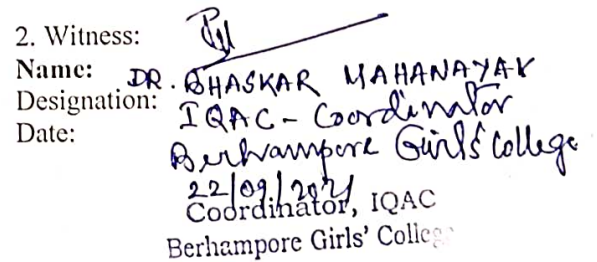 2. Witness:
Name: DR. BHASKAR MAHANAYAK
Designation: IQAC - Coordinator
Berhampore Girls' College
Date: 22/09/2021
Coordinator, IQAC
Berhampore Girls' College